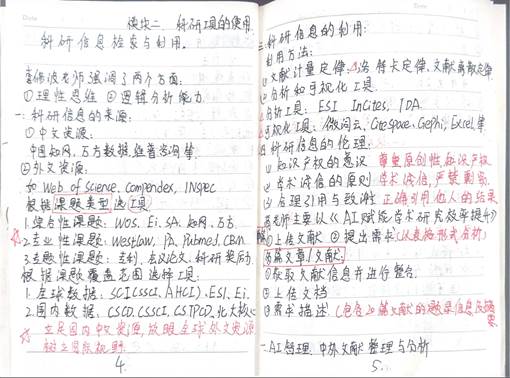 模块二 科研工具的使用
科研信息检索与利用.
老师强调了两个方面:
①理性思维 ②逻辑分析能力
一.科研信息的来源:
①中文资源:
中国知网,万方数据,维普咨询等.
②外文资源:
如 Web of science, compendex, INspec
根据课题类型选工具:
1.综合性课题: WOS. Ei. SA. 知网.万方
2.专业性课题: Westlaw, PA, Pubmed, CBM
3.主题性课题: 专利、会议论文、科研奖励
根据课题覆盖范围选择工具:
1.全球数据: SCI(SSCI, AHCI), ESI, Ei.
2.国内数据: CSCD, CSSCI, CSTPCD, 北大核心
立足国内中文资源,放眼全球外文资源
树立国际视野.
4.
三.科研信息的利用:
利用方法:
①文献计量定律: 洛特卡定律、文献离散定律
②分析和可视化工具.
分析工具: ESI InCites, IDA.
可视化工具: 微词云, Citespace, Gephi, Excel等
四.科研信息的伦理:
①知识产权的意识 尊重原创性,知识产权
②学术诚信的原则 学术诚信,严禁剽窃.
③合理引用与致谢 正确引用他人的结果
老师主要以《AI赋能学术研究效率提升》
①上传文献 ②提出需求(以表格形式分析)
多篇文章/文献:
①获取文献信息并进行整合
②上传文档
③需求描述.(包含20篇文献的题录信息及摘要
一.AI管理.中外文献整理与分析
5.